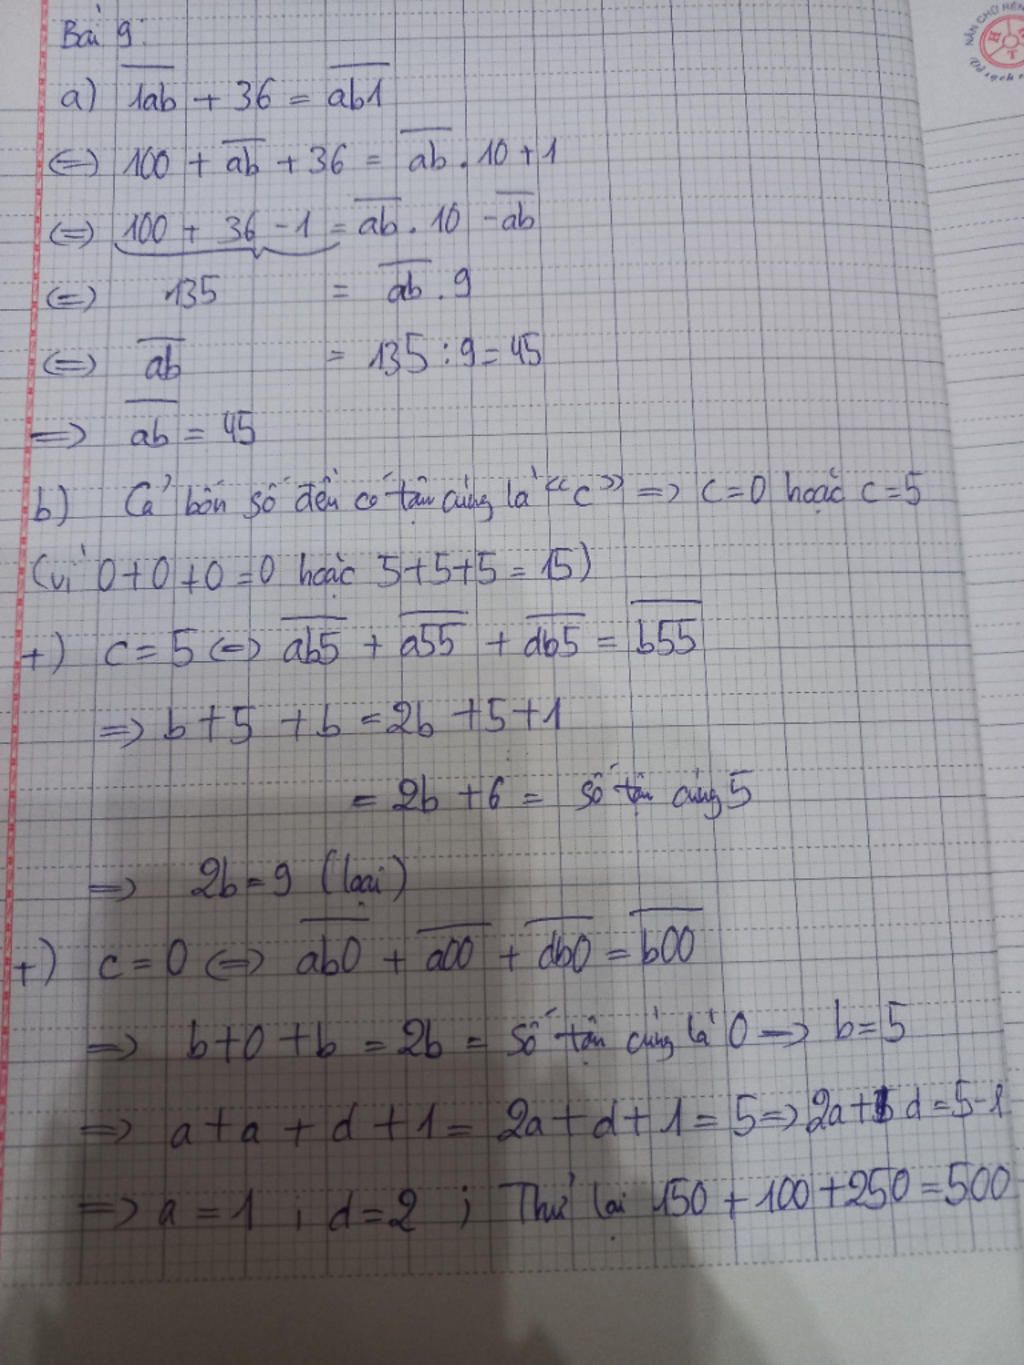 Bài 9.
a) 1ab + 36 = ab1
<=> 100 + ab + 36 = ab . 10 + 1
<=> 100 + 36 - 1 = ab . 10 - ab
<=> 135 = ab . 9
<=> ab = 135 : 9 = 45
=> ab = 45
b) Cả bốn số đều có tận cùng là "c" => c = 0 hoặc c = 5
(vì 0 + 0 + 0 = 0 hoặc 5 + 5 + 5 = 15)
+) c = 5 <=> ab5 + a55 + db5 = b55
=> b + 5 + b = 2b + 5 + 1
= 2b + 6 = số tận cùng 5
=> 2b = 9 (loại)
+) c = 0 <=> ab0 + a00 + db0 = b00
=> b + 0 + b = 2b = số tận cùng là 0 => b = 5
=> a + a + d + 1 = 2a + d + 1 = 5 => 2a + d = 5 - 1
=> a = 1 ; d = 2 ; Thử lại 150 + 100 + 250 = 500
NẮN CHỮ RÈN